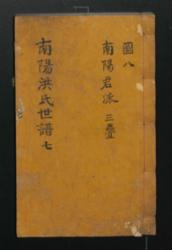 國八
南陽君派 三疊
南陽洪氏世譜 七